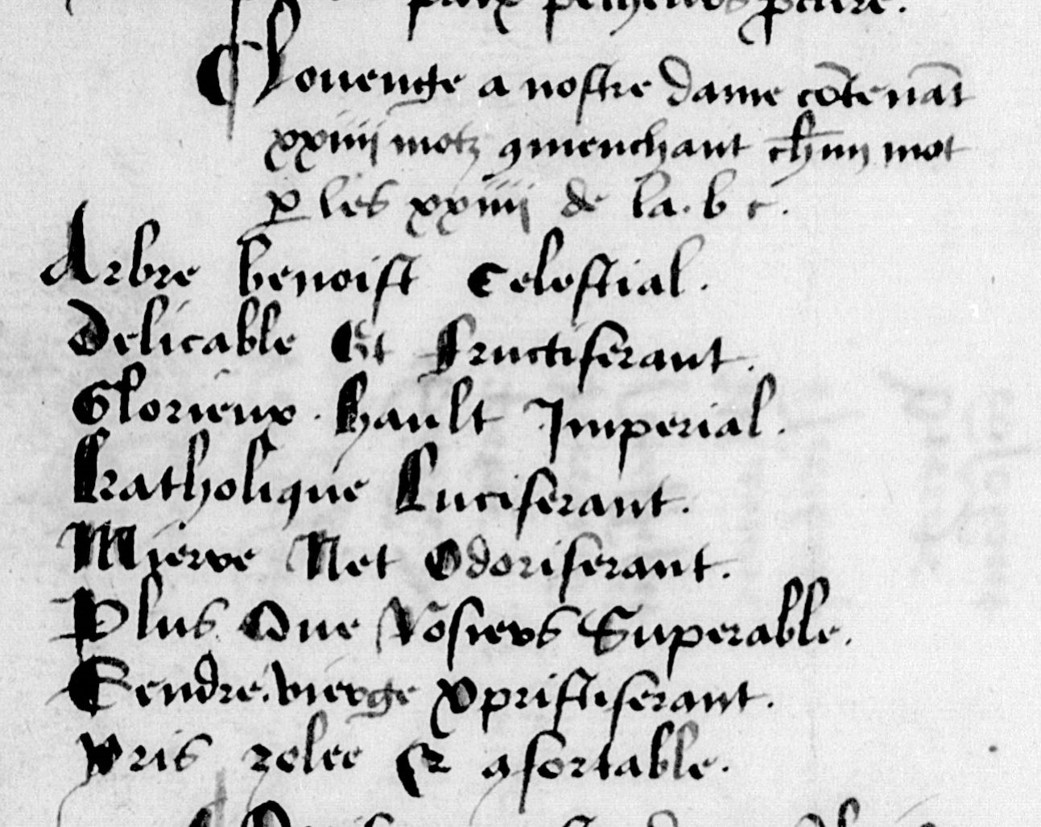 paix pecheurs p̱cure.
¶ Louenge a nostre dame cōtenāt
xxiiii motz ꝯmenchant ch̄un mot
ꝑ les xxiiii de la. b c.
Arbre benoist Celestial.
Delicable Et Fructiferant.
Glorieux. Hault Imperial.
Katholique Luciferant.
Mierre Net Odoriferant.
Plus Que Rosiers Superable.
Tendre. vierge Xpristiferant.
Yris zelee & ꝯfortable.